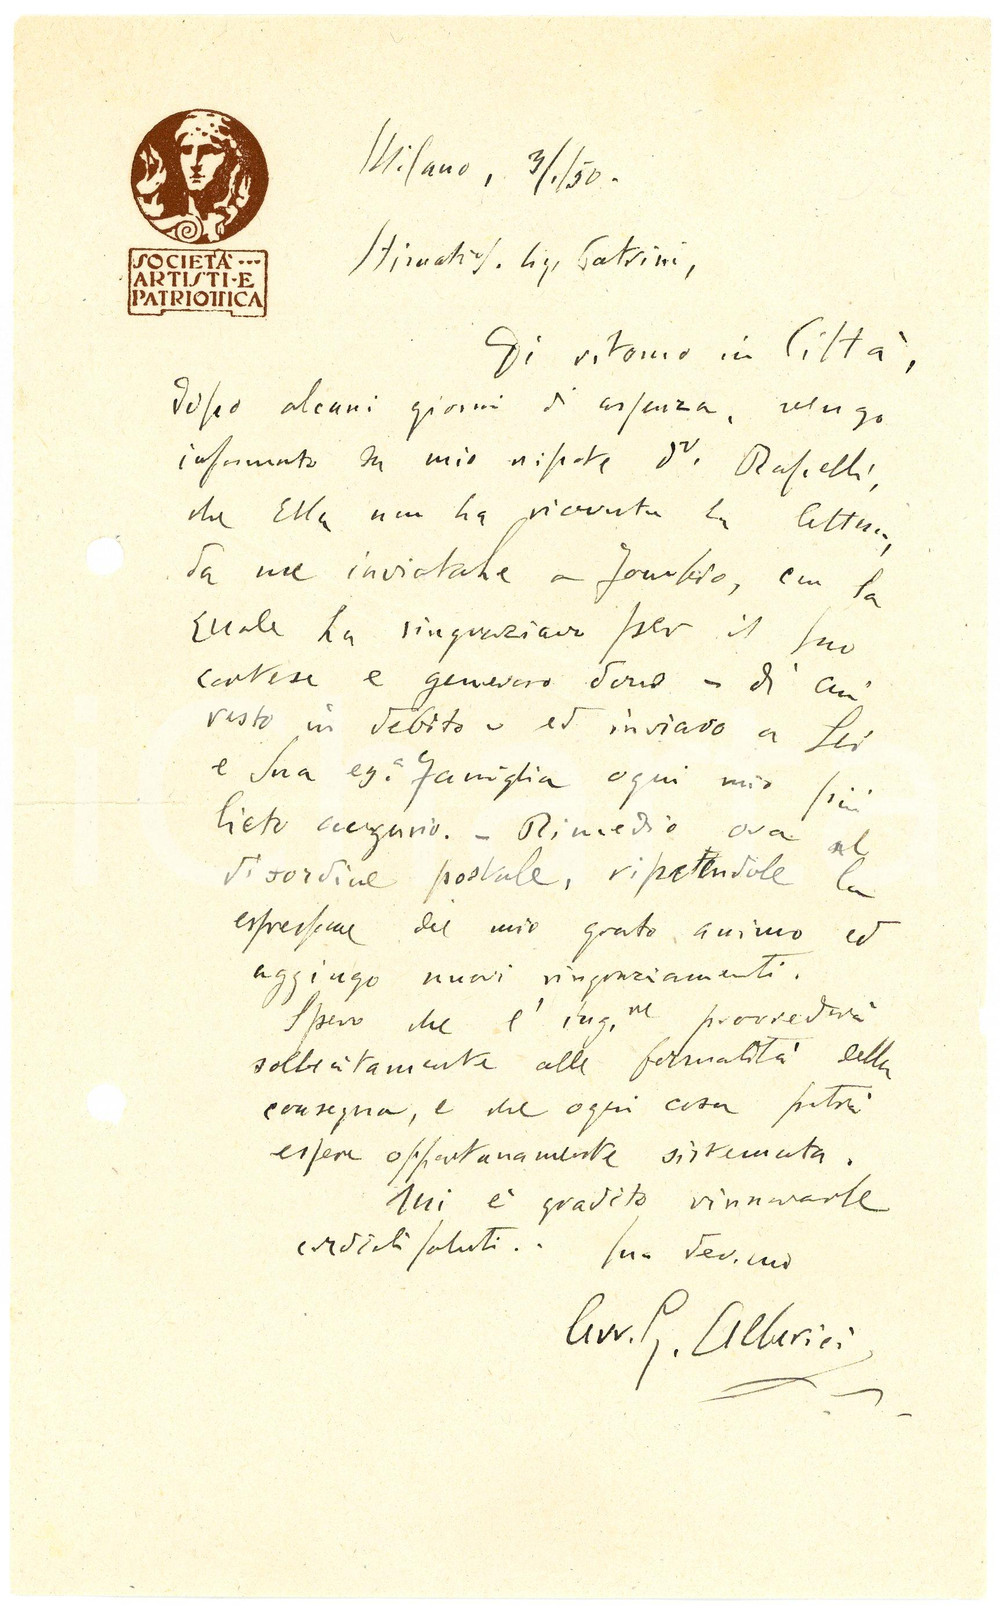 SOCIETÀ ···
ARTISTI·E
PATRIOTTICA
Milano, 3/1/50.
Stimatiss. Sig.
Di ritorno in Città,
dopo alcuni giorni di assenza, vengo
informato da mio nipote dr. Rapelli,
che Ella non ha ricevuta la lettera,
da me inviatale a, con la
quale La ringraziavo per il Suo
cortese e generoso dono – di cui
resto in debito – ed inviavo a Lei
e Sua eg.a famiglia ogni mio più
lieto augurio. – Rimedio ora al
disordine postale, ripetendole la
espressione del mio grato animo ed
aggiungo nuovi ringraziamenti.
Spero che l'ing.re provvederà
sollecitamente alle formalità della
consegna, e che ogni cosa potrà
essere opportunamente sistemata.
Mi è gradito rinnovarle
cordiali saluti. – Suo dev.mo
Avv. G. Alberici